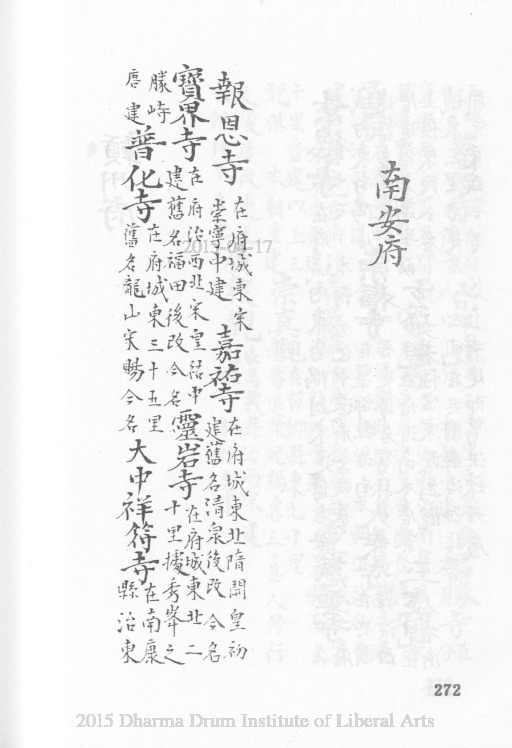 南安府
報恩寺 在府城東宋崇寧中建 嘉祐寺 在府城東北隋開皇初建舊名清泉後改今名
寶界寺 在府治西北宋皇祐中建舊名福田後改今名 靈岩寺 在府城東北二十里據秀峯之
勝崎唐建 普化寺 在府城東三十五里舊名龍山宋賜今名 大中祥符寺 在南康縣治東
2017-04-17
272
2015 Dharma Drum Institute of Liberal Arts